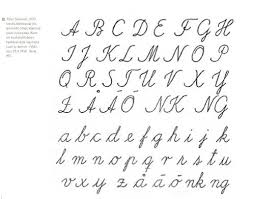 A B C D E F G H
I J K L M N O P
R S T U V X Y
Z Å Ä Ö NK NG
a b c d e f g h i j k
l m n o p q r s t u
v x y z å ä ö nk ng